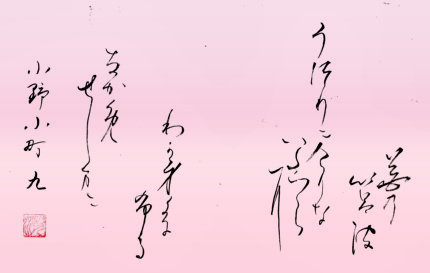 花の
色波
うつりにけりな
いたつらに
わか身世に
ふる
なか免
せしまに
小野小町 九